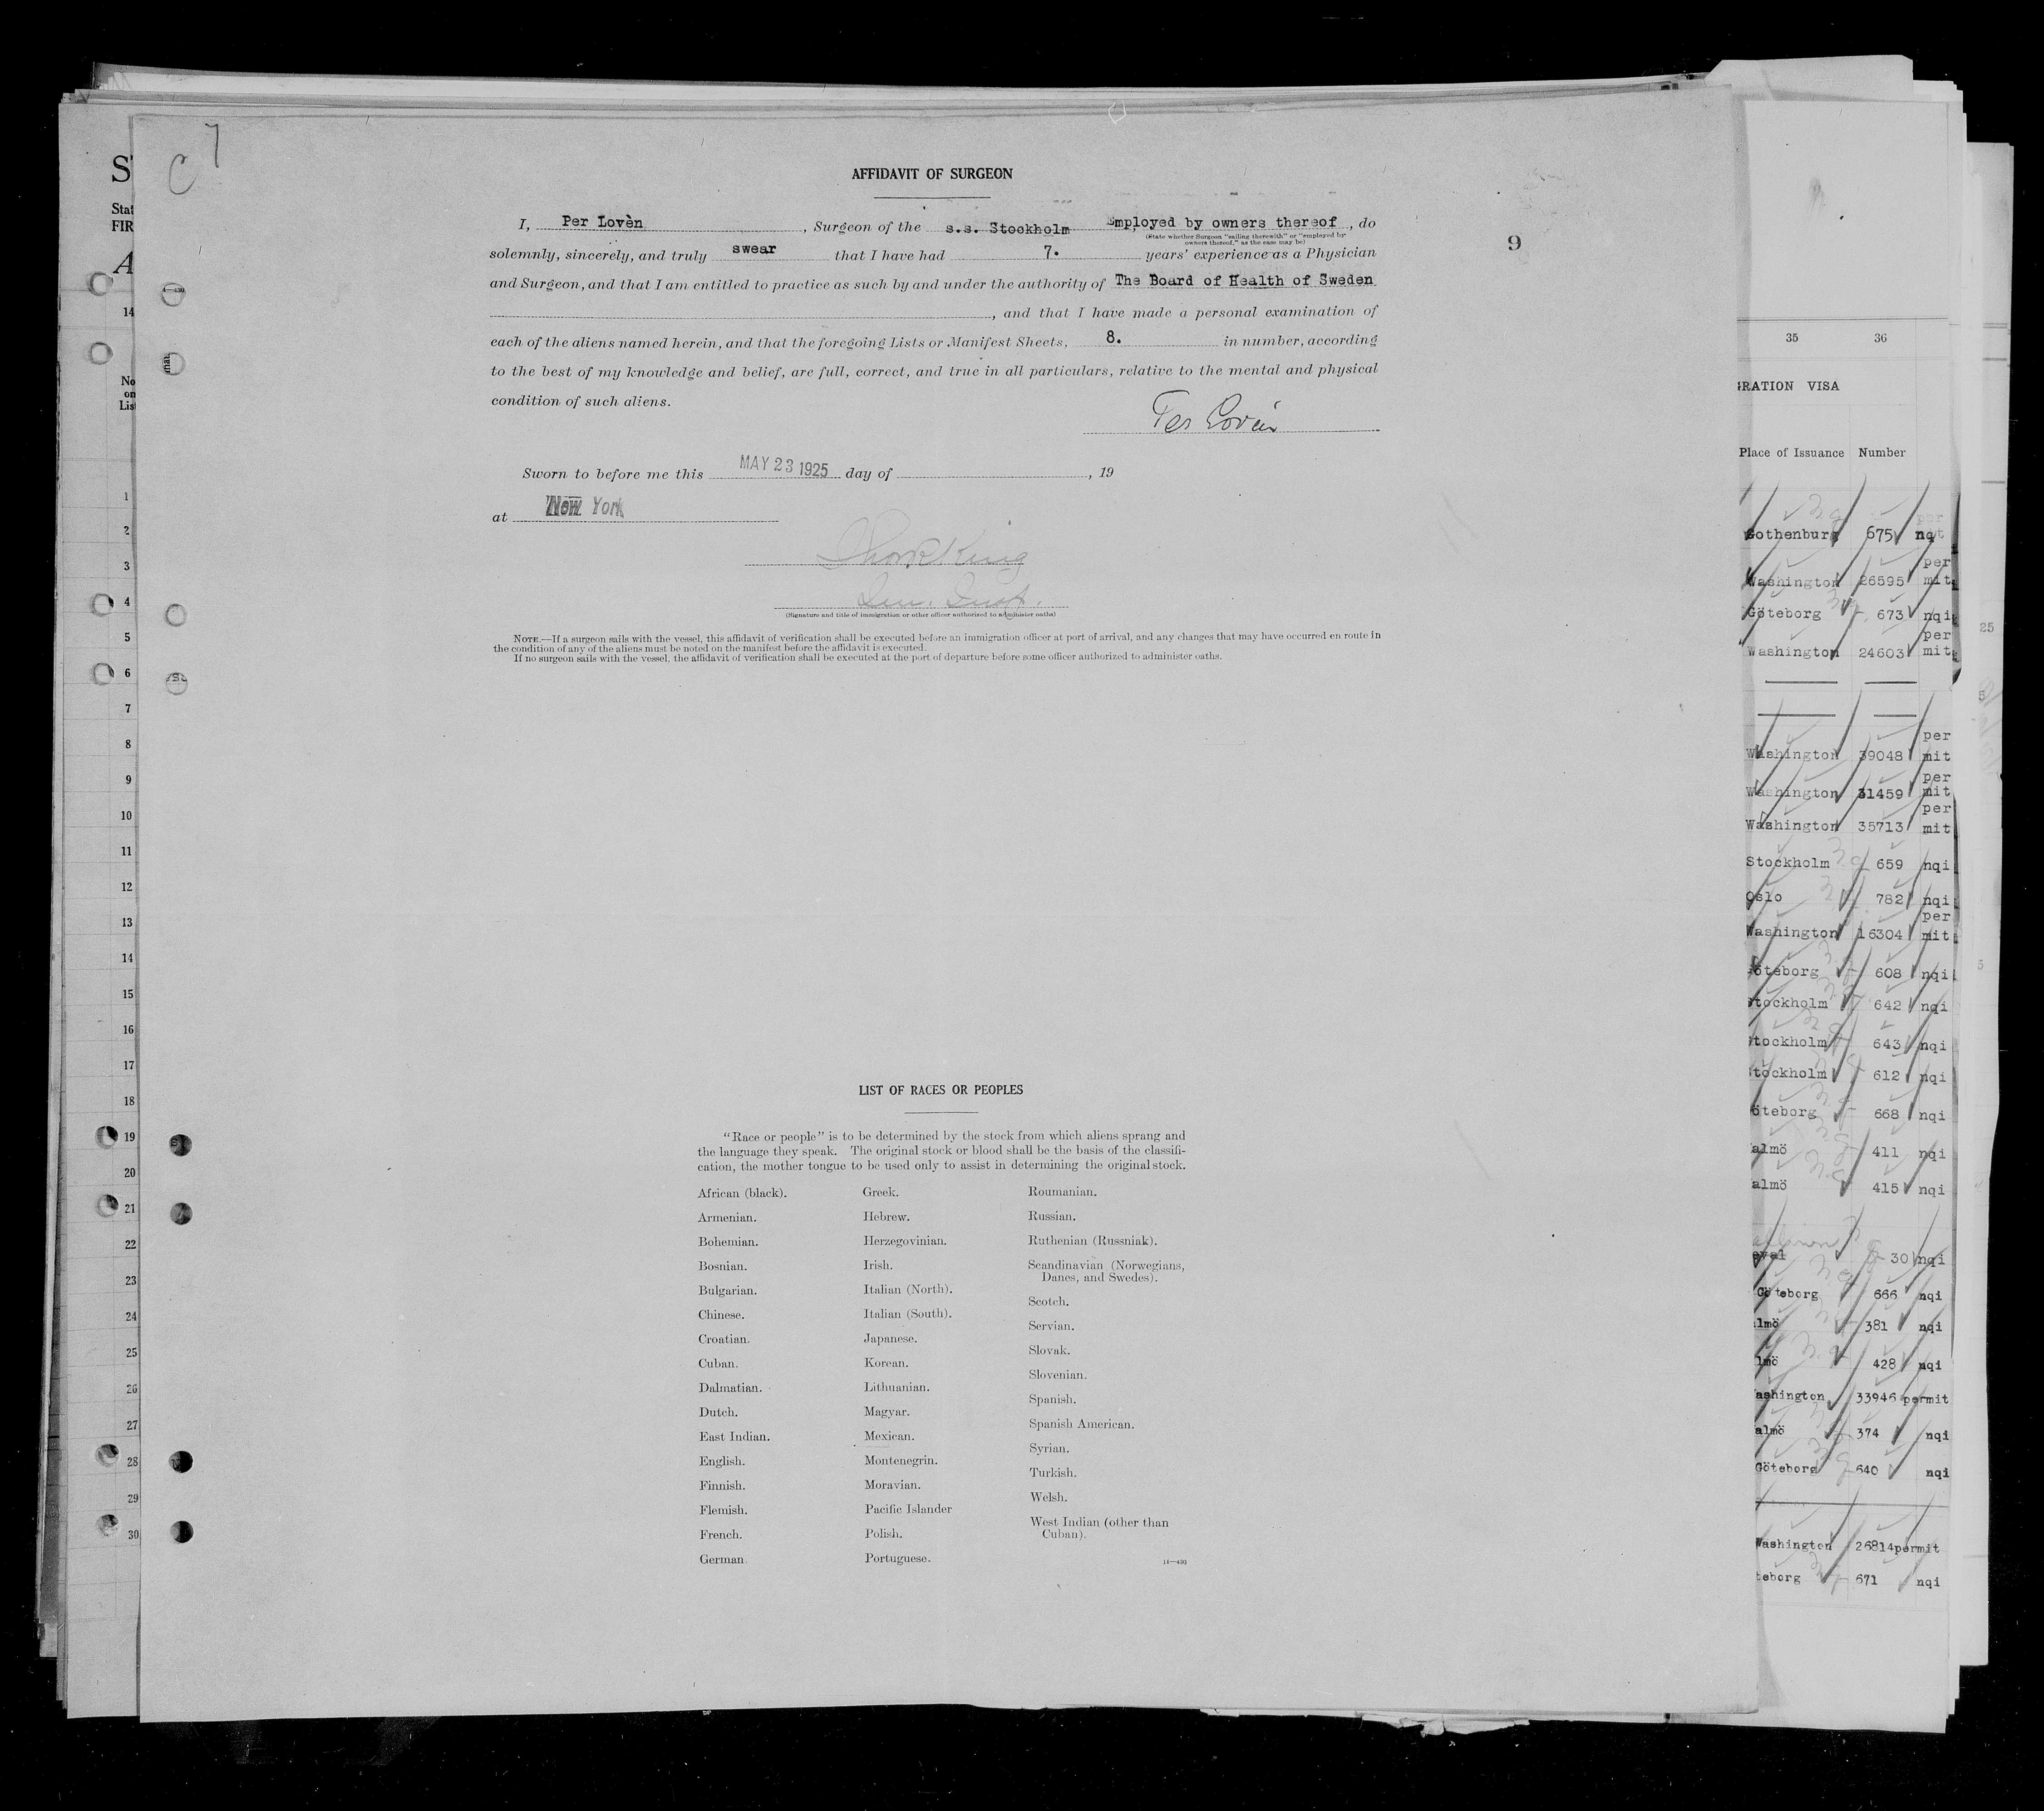 C 7
AFFIDAVIT OF SURGEON
I, Per Lovèn, Surgeon of the s.s. Stockholm Employed by owners thereof, do
(State whether Surgeon "sailing therewith" or "employed by
owners thereof," as the case may be)
9
solemnly, sincerely, and truly swear that I have had 7. years' experience as a Physician
and Surgeon, and that I am entitled to practice as such by and under the authority of The Board of Health of Sweden
, and that I have made a personal examination of
each of the aliens named herein, and that the foregoing Lists or Manifest Sheets, 8. in number, according
to the best of my knowledge and belief, are full, correct, and true in all particulars, relative to the mental and physical
condition of such aliens.
Per Lovén
Sworn to before me this MAY 23 1925 day of , 19
at New York
King
(Signature and title of immigration or other officer authorized to administer oaths)
NOTE.—If a surgeon sails with the vessel, this affidavit of verification shall be executed before an immigration officer at port of arrival, and any changes that may have occurred en route in
the condition of any of the aliens must be noted on the manifest before the affidavit is executed.
If no surgeon sails with the vessel, the affidavit of verification shall be executed at the port of departure before some officer authorized to administer oaths.
LIST OF RACES OR PEOPLES
"Race or people" is to be determined by the stock from which aliens sprang and
the language they speak. The original stock or blood shall be the basis of the classifi-
cation, the mother tongue to be used only to assist in determining the original stock.
African (black).
Armenian.
Bohemian.
Bosnian.
Bulgarian.
Chinese.
Croatian.
Cuban.
Dalmatian.
Dutch.
East Indian.
English.
Finnish.
Flemish.
French.
German.
Greek.
Hebrew.
Herzegovinian.
Irish.
Italian (North).
Italian (South).
Japanese.
Korean.
Lithuanian.
Magyar.
Mexican.
Montenegrin.
Moravian.
Pacific Islander
Polish.
Portuguese.
Roumanian.
Russian.
Ruthenian (Russniak).
Scandinavian (Norwegians,
Danes, and Swedes).
Scotch.
Servian.
Slovak.
Slovenian.
Spanish.
Spanish American.
Syrian.
Turkish.
Welsh.
West Indian (other than
Cuban).
14—430
S
Stat
FIR
A
14
No
on
List
1
2
3
4
5
6
7
8
9
10
11
12
13
14
15
16
17
18
19
20
21
22
23
24
25
26
27
28
29
30
35 36
RATION VISA
Place of Issuance Number
Gothenburg 675 nqi
Washington 26595 per mit
Göteborg 673 nqi
Washington 24603 per mit
Washington 39048 per mit
Washington 31459 per mit
Washington 35713 per mit
Stockholm 659 nqi
Oslo 782 nqi
Washington 16304 per mit
öteborg 608 nqi
Stockholm 642 nqi
tockholm 643 nqi
tockholm 612 nqi
öteborg 668 nqi
almö 411 nqi
almö 415 nqi
eval 30 nqi
Göteborg 666 nqi
lmö 381 nqi
lmö 428 nqi
ashington 33946 permit
almö 374 nqi
Göteborg 640 nqi
Washington 26814 permit
teborg 671 nqi
25
5